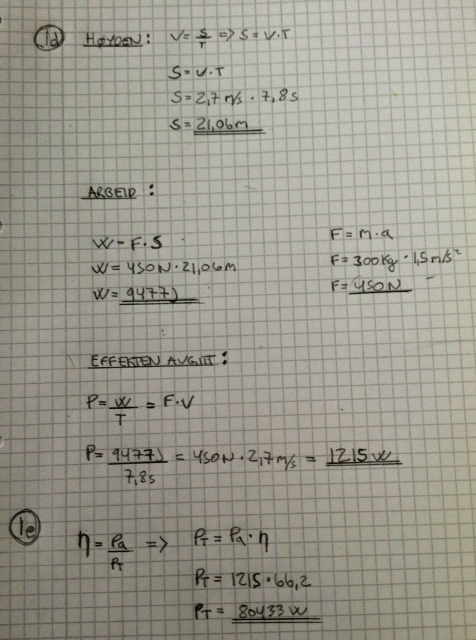 1d HØYDEN: V = S/T => S = V·T
S = V·T
S = 2,7 m/s · 7,8s
S = 21,06m
ARBEID:
W = F·S
W = 450N · 21,06m
W = 9477J
F = m·a
F = 300kg · 1,5m/s²
F = 450N
EFFEKTEN AVGITT:
P = W/T = F·V
P = 9477J/7,8s = 450N · 2,7m/s = 1215W
1e η = Pa/PT => PT = Pa·η
PT = 1215·66,2
PT = 80433W